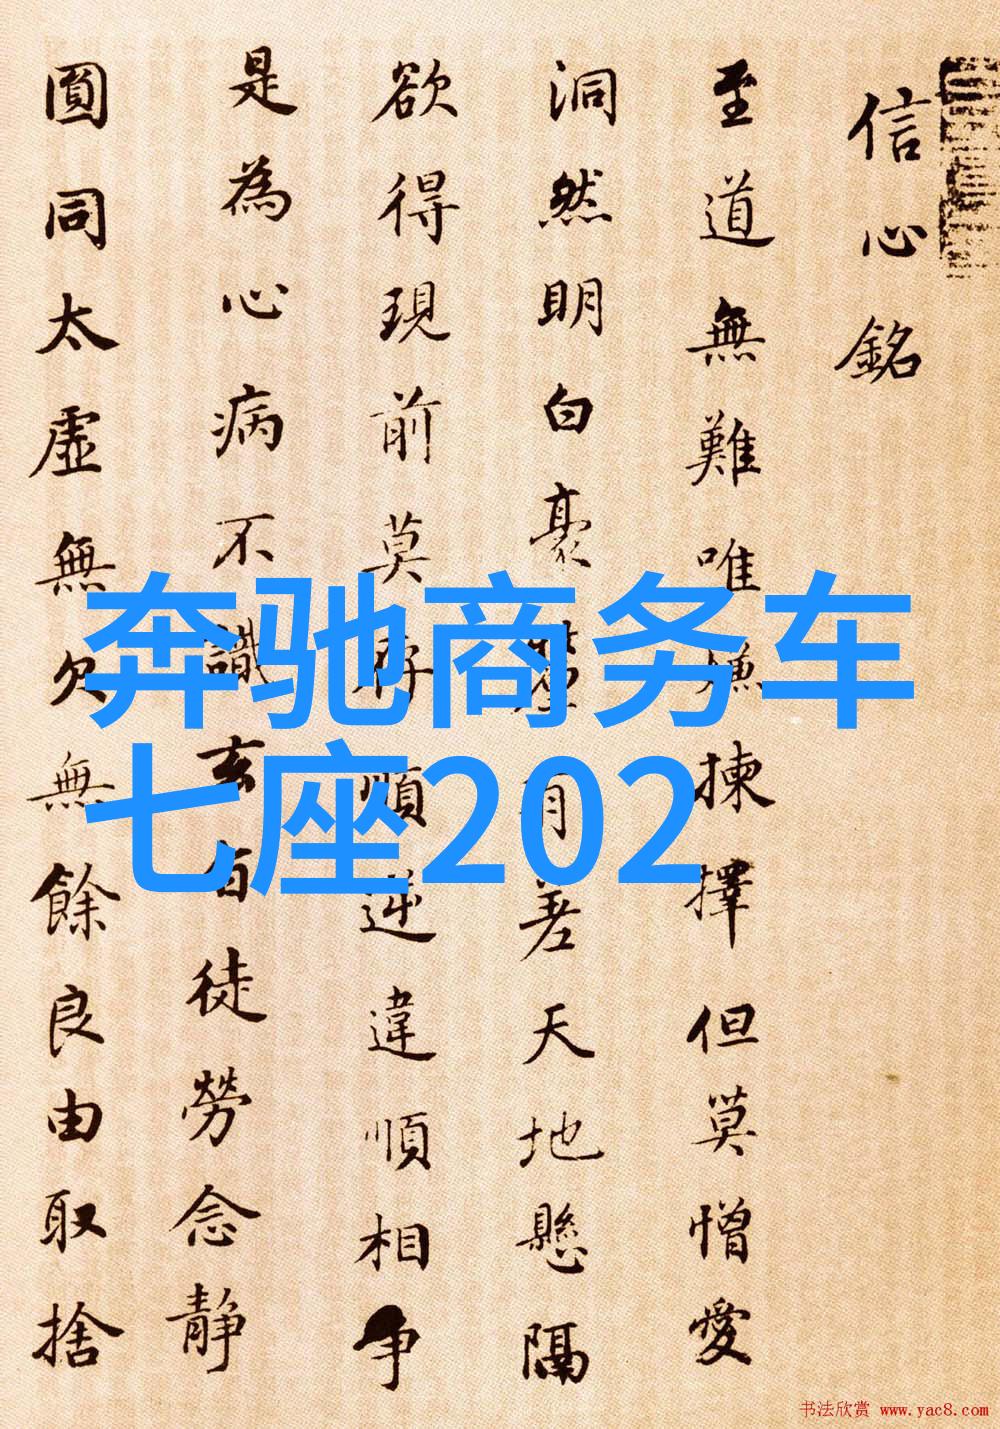 信心銘
至道無難唯嫌揀擇但莫憎愛
洞然明白豪釐有差天地懸隔
欲得現前莫存順逆違順相爭
是為心病不識玄旨徒勞念静
圓同太虛無欠無餘良由取捨
奔驰商务车
七座202
书法欣赏 www.yac8.com